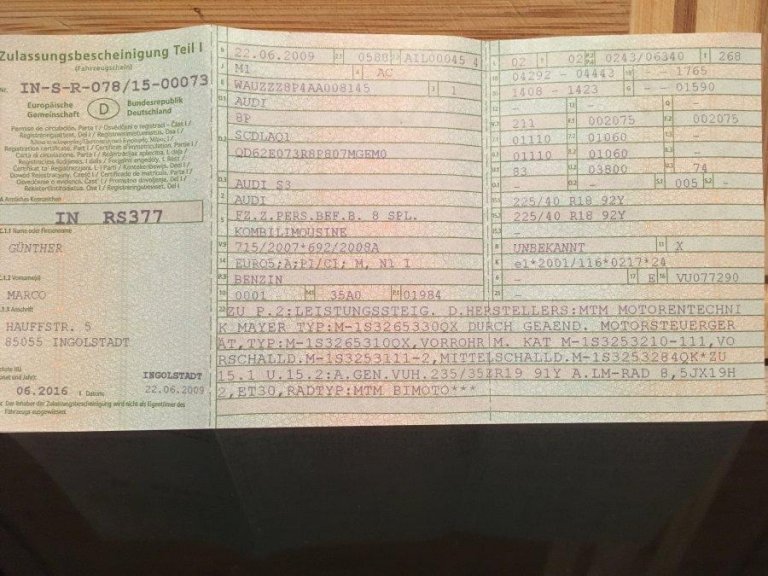 Zulassungsbescheinigung Teil I
(Fahrzeugschein)
Nr. IN-S-R-078/15-00073
Europäische Gemeinschaft
D
Bundesrepublik Deutschland
Permiso de circulación. Parte I /
A Amtliches Kennzeichen
IN RS377
C.1.1 Name oder Firmenname
GÜNTHER
C.1.2 Vorname(n)
MARCO
C.1.3 Anschrift
HAUFFSTR. 5
85055 INGOLSTADT
Nächste HU
INGOLSTADT
06.2016 I Datum: 22.06.2009
Der Inhaber der Zulassungsbescheinigung wird nicht als Eigentümer des Fahrzeugs ausgewiesen.
B 22.06.2009 0588 AIL00045 4
J M1 4 AC
E WAUZZZ8P4AA008145 3 1
D.1 AUDI
8P
D.2 SCDLAQ1
QD62E073R8P807MGEM0
D.3 AUDI S3
2 AUDI
5 FZ.Z.PERS.BEF.B. 8 SPL.
KOMBILIMOUSINE
V.9 715/2007*692/2008A
14 EURO5;A;P1/C1; M, N1 I
P.3 BENZIN
10 0001 35A0 01984
02 02 0243/06340 T 268
18 04292 - 04443 - 1765
19 1408 - 1423 G - 01590
12 - Q -
211 002075 002075
01110 01060 -
01110 01060 -
U.1 83 03800 74
- - 005 -
15.1 225/40 R18 92Y
15.2 225/40 R18 92Y
15.3 -
R UNBEKANNT 11 X
K e1*2001/116*0217*24
6 - 17 E 16 VU077290
21 -
22 ZU P.2:LEISTUNGSSTEIG. D.HERSTELLERS:MTM MOTORENTECHNI
K MAYER TYP:M-1S3265330QX DURCH GEAEND. MOTORSTEUERGER
ÄT,TYP:M-1S3265310QX,VORROHR M. KAT M-1S3253210-111,VO
RSCHALLD.M-1S3253111-2,MITTELSCHALLD.M-1S3253284QK*ZU
15.1 U.15.2:A.GEN.VUH.235/35ZR19 91Y A.LM-RAD 8,5JX19H
2,ET30,RADTYP:MTM BIMOTO***